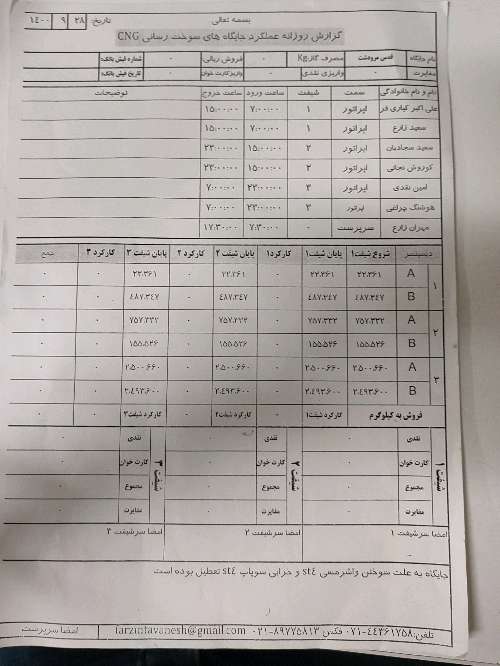 بسمه تعالی
تاریخ: ۲۸ ۹ ۱۴۰۰
گزارش روزانه عملکرد جایگاه های سوخت رسانی CNG
نام جایگاه قدس مرودشت مصرف گاز:Kg ۰ فروش ریالی: ۰ شماره فیش بانک:
مغایرت ۰ واریزی نقدی ۰ واریز کارت خوان ۰ تاریخ فیش بانک:
نام و نام خانوادگی سمت شیفت ساعت ورود ساعت خروج توضیحات
علی اکبر کیاری فر اپراتور ۱ ۷:۰۰:۰۰ ۱۵:۰۰:۰۰
سعید زارع اپراتور ۱ ۷:۰۰:۰۰ ۱۵:۰۰:۰۰
سعید سجادیان اپراتور ۲ ۱۵:۰۰:۰۰ ۲۳:۰۰:۰۰
کوروش نجاتی اپراتور ۲ ۱۵:۰۰:۰۰ ۲۳:۰۰:۰۰
امین نقدی اپراتور ۳ ۲۳:۰۰:۰۰ ۷:۰۰:۰۰
هوشنگ چراغی اپراتور ۳ ۲۳:۰۰:۰۰ ۷:۰۰:۰۰
مهران زارع سرپرست ۰ ۷:۳۰:۰۰ ۱۷:۳۰:۰۰
دیسپنسر شروع شیفت۱ پایان شیفت۱ کارکرد۱ پایان شیفت ۲ کارکرد ۲ پایان شیفت ۳ کارکرد ۳ جمع
۱ A ۲۲.۳۶۱ ۲۲.۳۶۱ ۰ ۲۲.۳۶۱ ۰ ۲۲.۳۶۱ ۰ ۰
B ۴۸۷.۳۴۷ ۴۸۷.۳۴۷ ۰ ۴۸۷.۳۴۷ ۰ ۴۸۷.۳۴۷ ۰ ۰
۲ A ۷۵۷.۳۳۲ ۷۵۷.۳۳۲ ۰ ۷۵۷.۳۳۲ ۰ ۷۵۷.۳۳۲ ۰ ۰
B ۱۵۵.۵۲۶ ۱۵۵.۵۲۶ ۰ ۱۵۵.۵۲۶ ۰ ۱۵۵.۵۲۶ ۰ ۰
۳ A ۲.۵۰۰.۶۶۰ ۲.۵۰۰.۶۶۰ ۰ ۲.۵۰۰.۶۶۰ ۰ ۲.۵۰۰.۶۶۰ ۰ ۰
B ۲.۴۹۳.۶۰۰ ۲.۴۹۳.۶۰۰ ۰ ۲.۴۹۳.۶۰۰ ۰ ۲.۴۹۳.۶۰۰ ۰ ۰
فروش به کیلوگرم کارکرد شیفت۱ ۰ کارکرد شیفت۲ ۰ کارکرد شیفت۳ ۰ ۰
شیفت ۱ نقدی ۰ شیفت ۲ نقدی ۰ شیفت ۳ نقدی ۰
کارت خوان ۰ کارت خوان ۰ کارت خوان ۰
مجموع ۰ مجموع ۰ مجموع ۰
مغایرت ۰ مغایرت ۰ مغایرت ۰
امضا سرشیفت ۱ امضا سرشیفت ۲ امضا سرشیفت ۳
جایگاه به علت سوختن واشرمسی st٤ و خرابی سوپاپ st٤ تعطیل بوده است
تلفن:۴۴۳۶۱۷۵۸-۰۷۱ فکس ۸۹۷۷۵۸۱۳-۰۲۱ farzinfavanesh@gmail.com امضا سرپرست